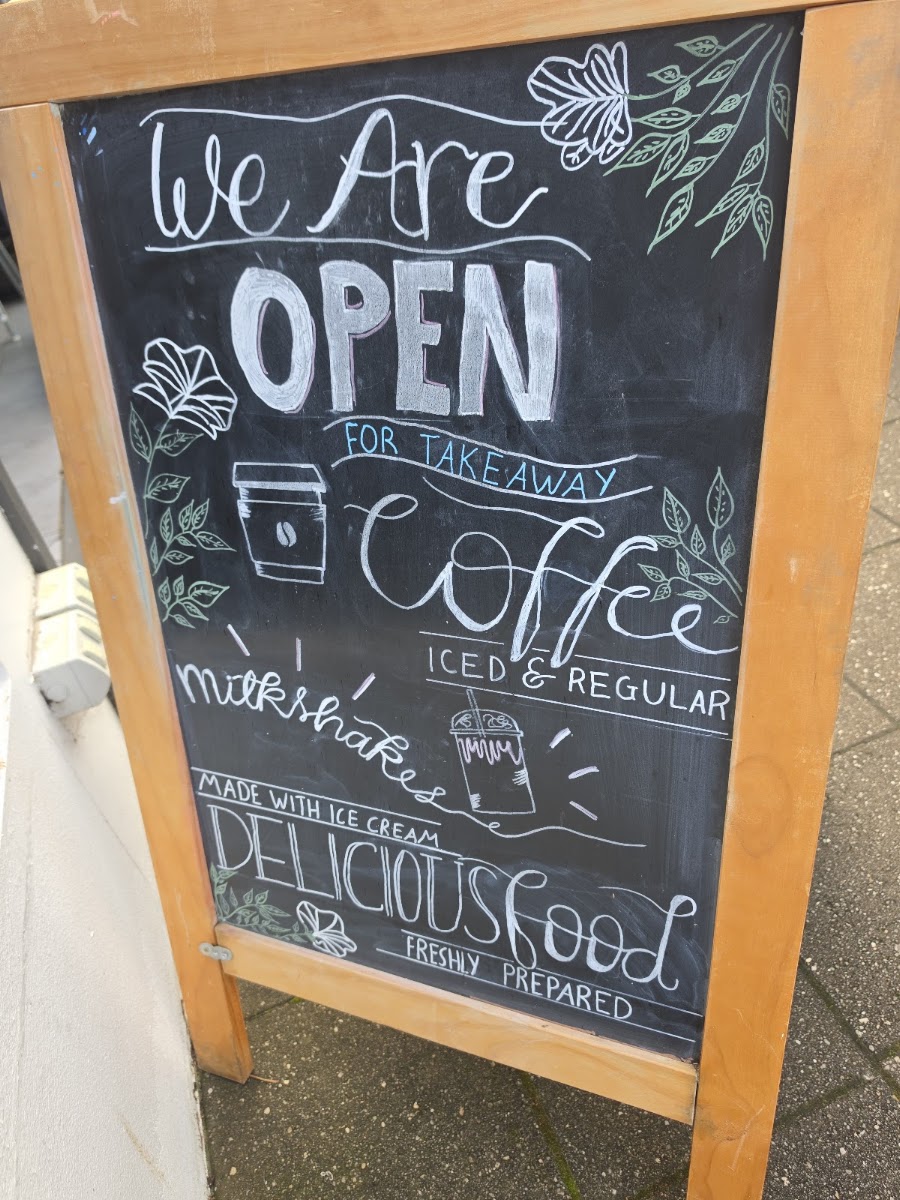 We Are
OPEN
FOR TAKEAWAY
Coffee
ICED & REGULAR
milkshakes
MADE WITH ICE CREAM
DELICIOUS food
FRESHLY PREPARED